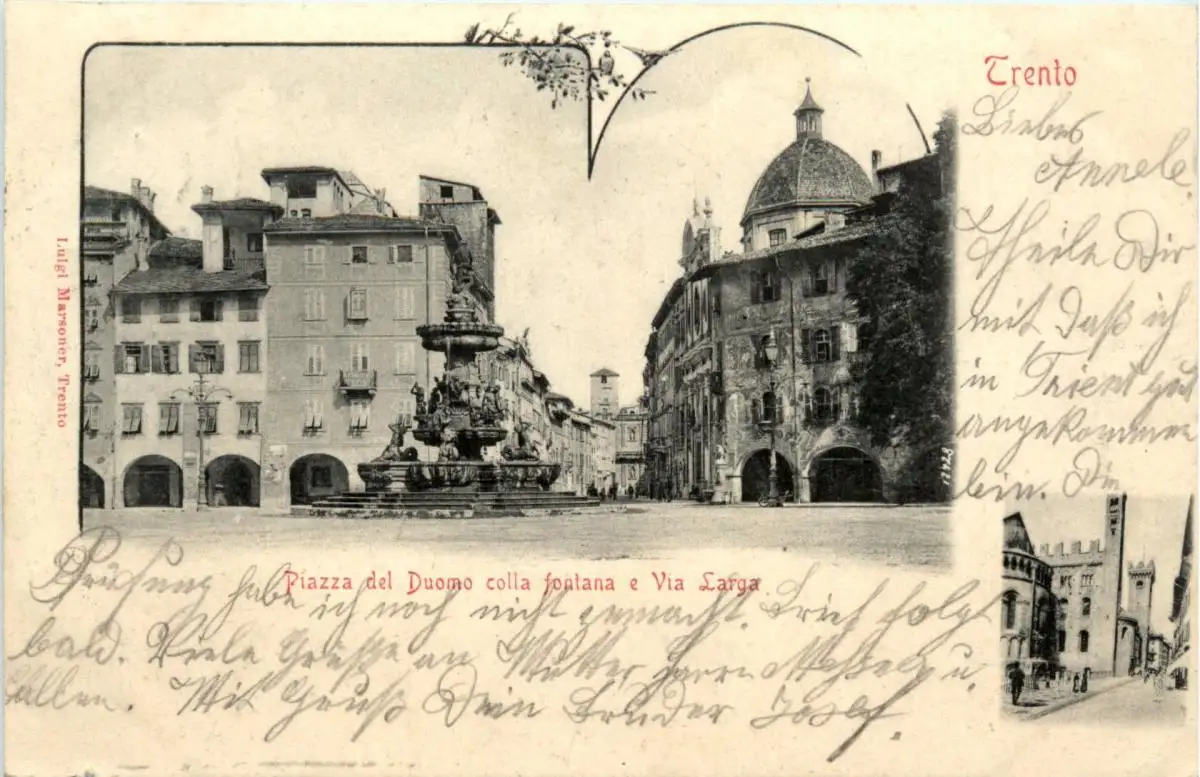 Trento
Liebes
Annele
Theile Dir
mit daß ich
in Trient gut
angekommen
bin. Die
Luigi Marsoner, Trento
22427
Piazza del Duomo colla fontana e Via Larga
Prüfung habe ich noch nicht gemacht. Brief folgt
bald. Viele Grüße an Mutter Herrn u.
Mit Gruß Dein Bruder Josef